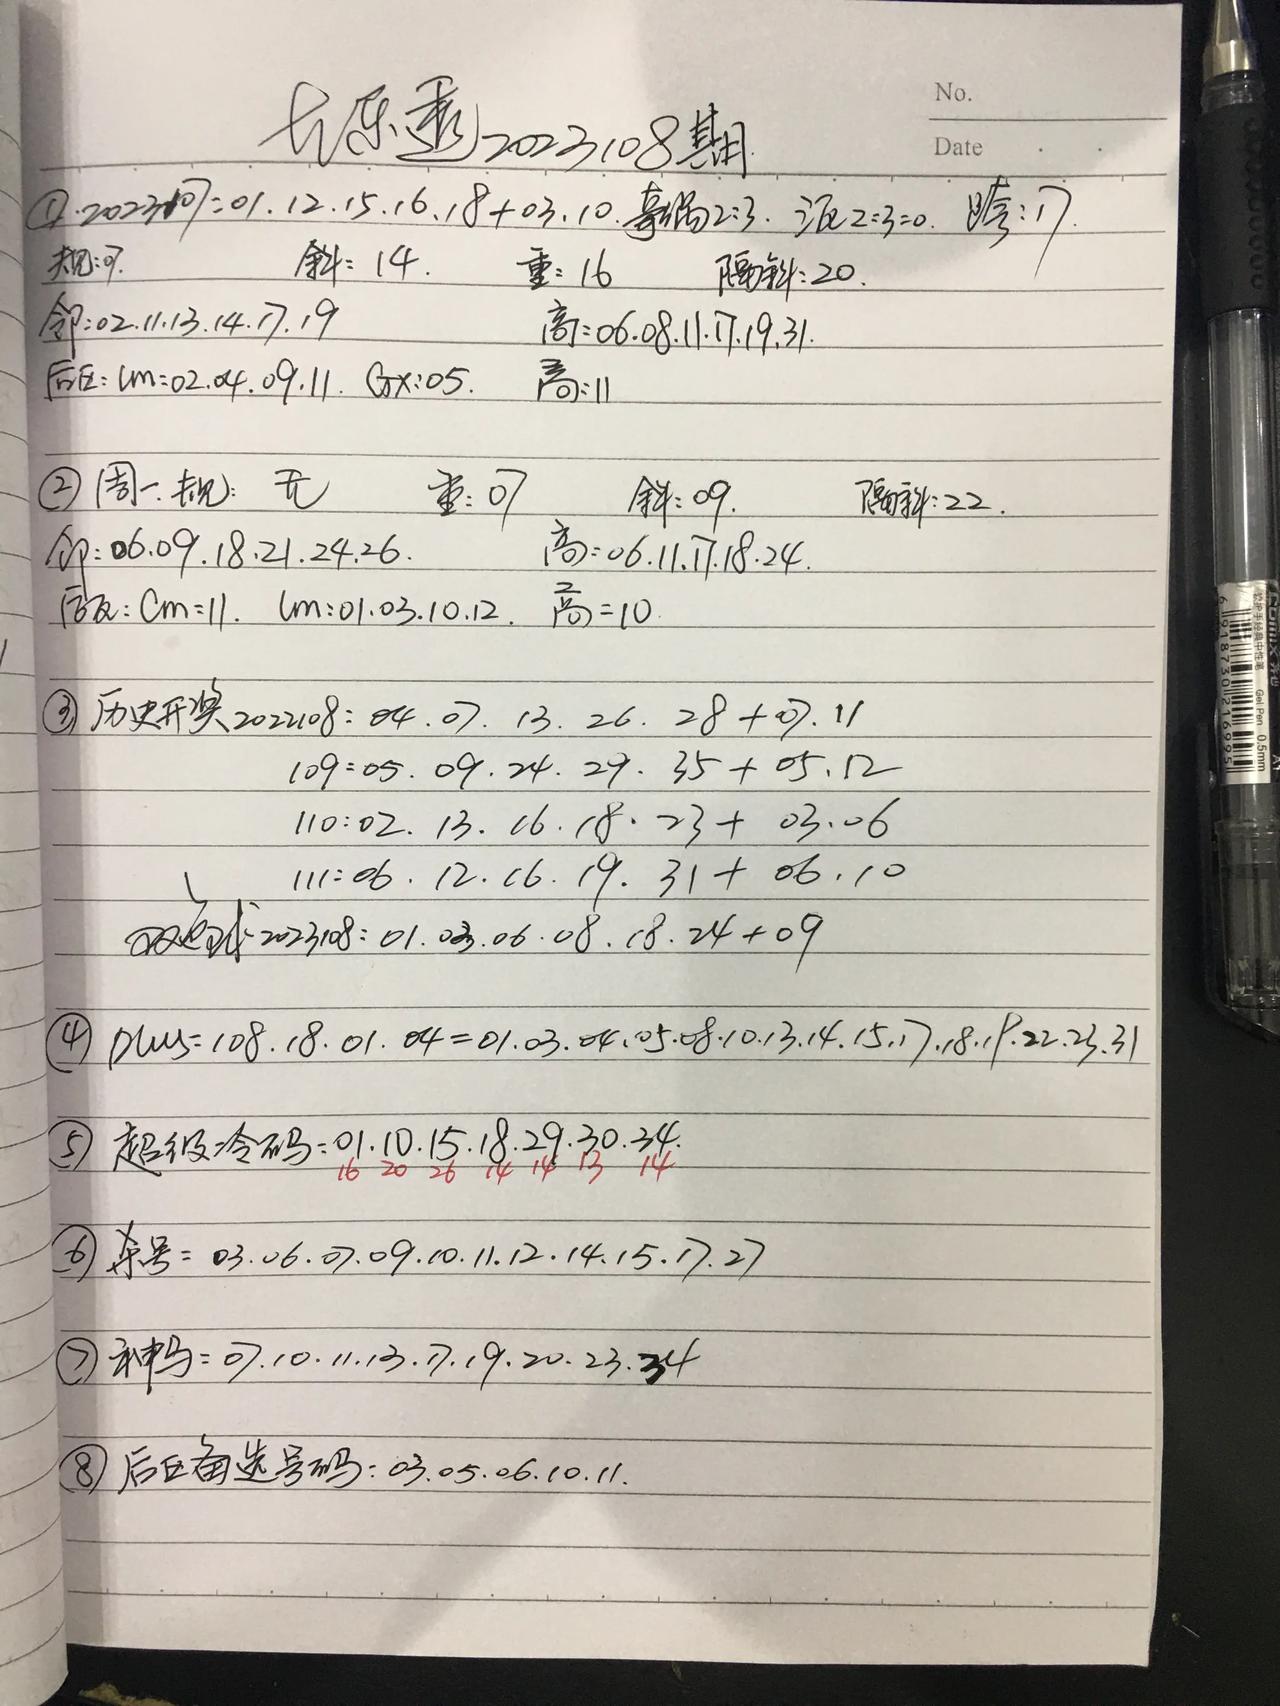 大乐透2023108期
No.
Date
① 2023107=01.12.15.16.18+03.10. 奇偶2:3. 012=2:3:0. 跨:17.
规:07. 斜=14. 重=16 隔斜:20.
邻:02.11.13.14.17.19 高=06.08.11.17.19.31.
后区: Lm=02.04.09.11. Gx:05. 高:11
② 周一.规: 无 重:07 斜:09. 隔斜:22.
邻:06.09.18.21.24.26. 高=06.11.17.18.24.
后区: Cm=11. Lm:01.03.10.12. 高=10.
③ 历史开奖2022108: 04.07.13.26.28+07.11
109=05.09.24.29.35+05.12
110:02.13.16.18.23+03.06
111:06.12.16.19.31+06.10
双色球2023108: 01.03.06.08.18.24+09
④ plus=108.18.01.04=01.03.04.05.08.10.13.14.15.17.18.19.22.23.31
⑤ 超级冷码=01.10.15.18.29.30.34.
16 20 26 14 14 13 14
⑥ 杀号=03.06.07.09.10.11.12.14.15.17.27
⑦ 神马=07.10.11.13.17.19.20.23.34
⑧ 后区备选号码:03.05.06.10.11.
Gel Pen 0.5mm
6 918730 216995